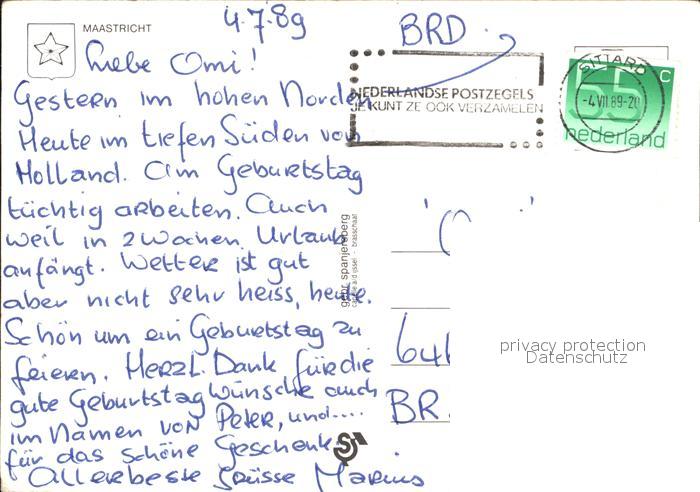 4.7.89
BRD
MAASTRICHT
Liebe Omi!
Gestern im hohen Norden
Heute im tiefen Süden von
Holland. Am Geburtstag
tüchtig arbeiten. Auch
weil in 2 Wochen Urlaub
anfängt. Wetter ist gut
aber nicht sehr heiss, heute.
Schön um ein Geburtstag zu
feieren. Herzl. Dank für die
gute Geburtstagwünsche auch
im Namen von Peter, und....
für das schöne Geschenk.
Allerbeste Grüsse Marius
NEDERLANDSE POSTZEGELS
JE KUNT ZE OOK VERZAMELEN
SITTARD
-4.VII.89-20
55 C
nederland
gebr. spanjersberg
641
BR
privacy protection
Datenschutz